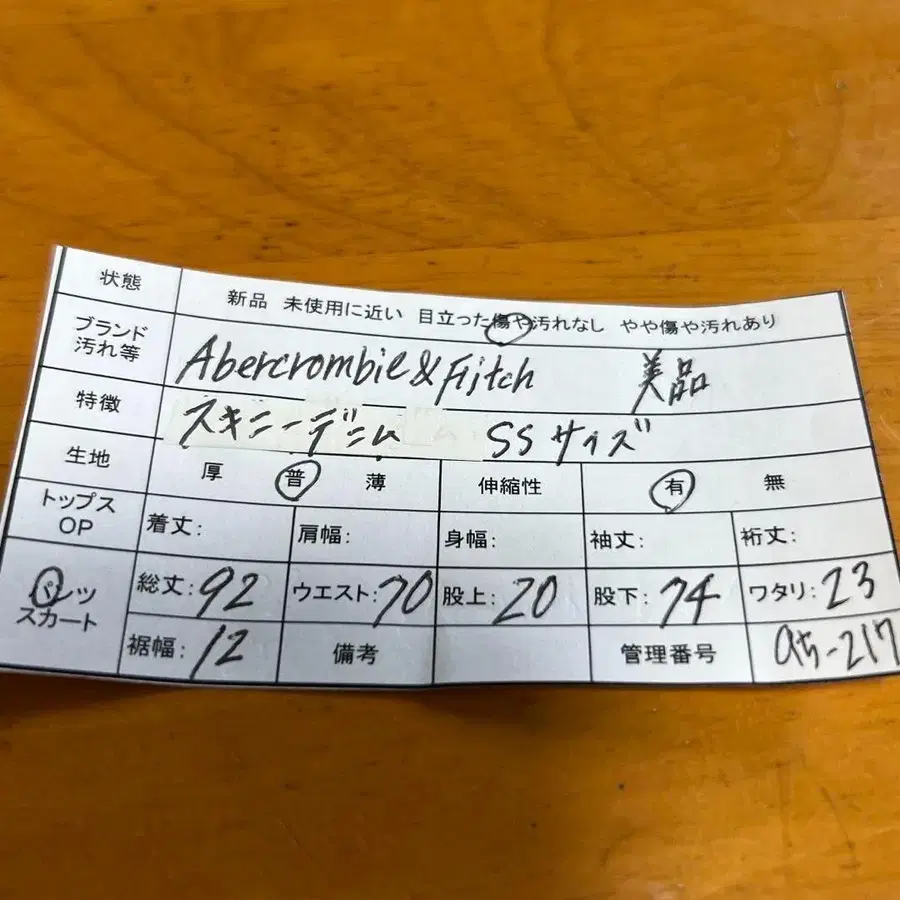 状態 新品 未使用に近い 目立った傷や汚れなし やや傷や汚れあり
ブランド 汚れ等 Abercrombie&Fitch 美品
特徴 スキニーデニム SSサイズ
生地 厚 普 薄 伸縮性 有 無
トップス OP 着丈: 肩幅: 身幅: 袖丈: 裄丈:
パンツ スカート 総丈:92 ウエスト:70 股上:20 股下:74 ワタリ:23
裾幅:12 備考 管理番号 -217